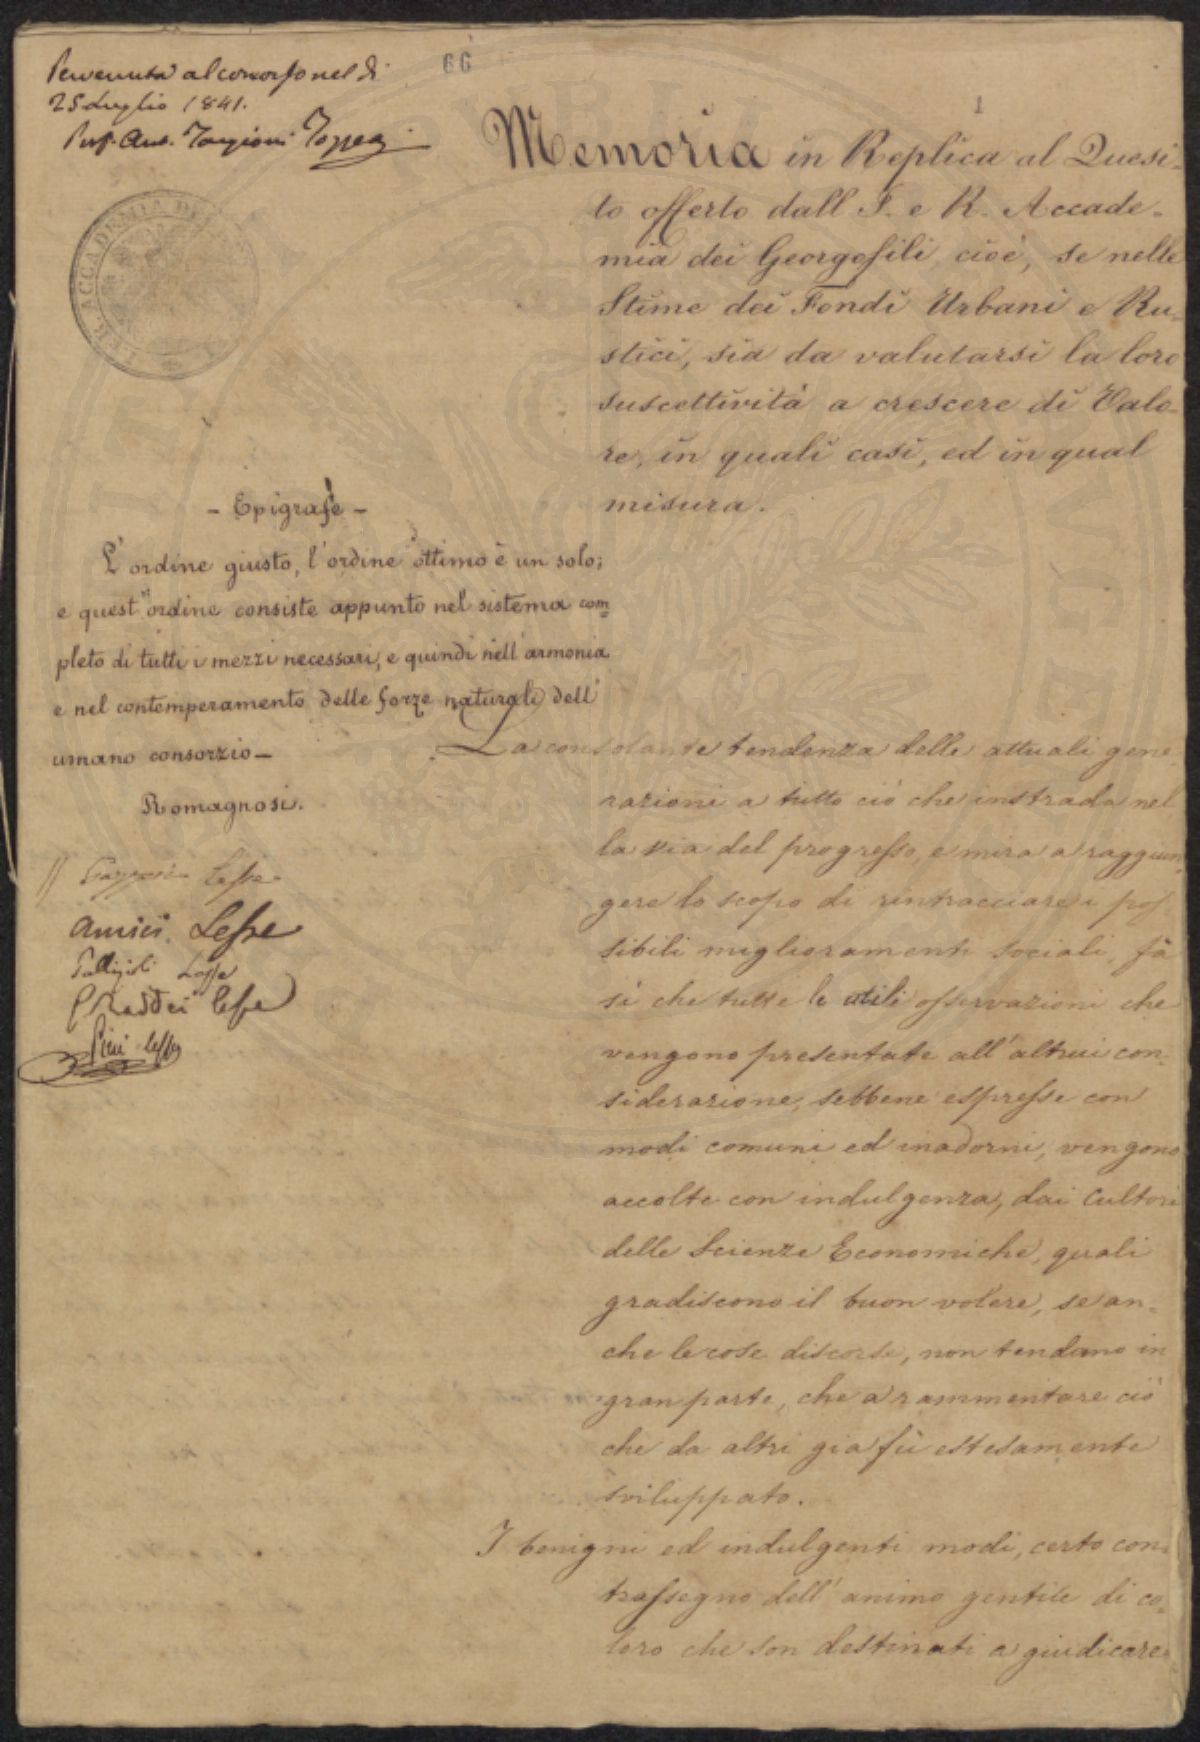 66
Pervenuta al concorso nel dì
25 Luglio 1841.
Prof. Ant. Targioni Tozzetti
1
Memoria in Replica al Quesi-
to offerto dall I. e R. Accade-
mia dei Georgofili, cioè, se nelle
Stime dei Fondi Urbani e Ru-
stici, sia da valutarsi la loro
suscettività a crescere di Valo-
re, in quali casi, ed in qual
misura.
ACCADEMIA DEI
- Epigrafe -
L'ordine giusto, l'ordine ottimo è un solo;
e quest'ordine consiste appunto nel sistema com-
pleto di tutti i mezzi necessari, e quindi nell'armonia
e nel contemperamento delle forze naturali dell'
umano consorzio-
Romagnosi.
Lesse
Amici Lesse
Lesse
Lesse
Pini lesse
La consolante tendenza delle attuali gene-
razioni a tutto ciò che instrada nel
la via del progresso, e mira a raggiun-
gere lo scopo di rintracciare i pos-
sibili miglioramenti sociali, fà
sì che tutte le utili osservazioni che
vengono presentate all'altrui con-
siderazione, sebbene espresse con
modi comuni ed inadorni, vengono
accolte con indulgenza, dai Cultori
delle Scienze Economiche, quali
gradiscono il buon volere, se an-
che le cose discorse, non tendano in
gran parte, che a rammentare ciò
che da altri già fù estesamente
sviluppato.
I benigni ed indulgenti modi, certo con-
trassegno dell'animo gentile di co-
loro che son destinati a giudicare